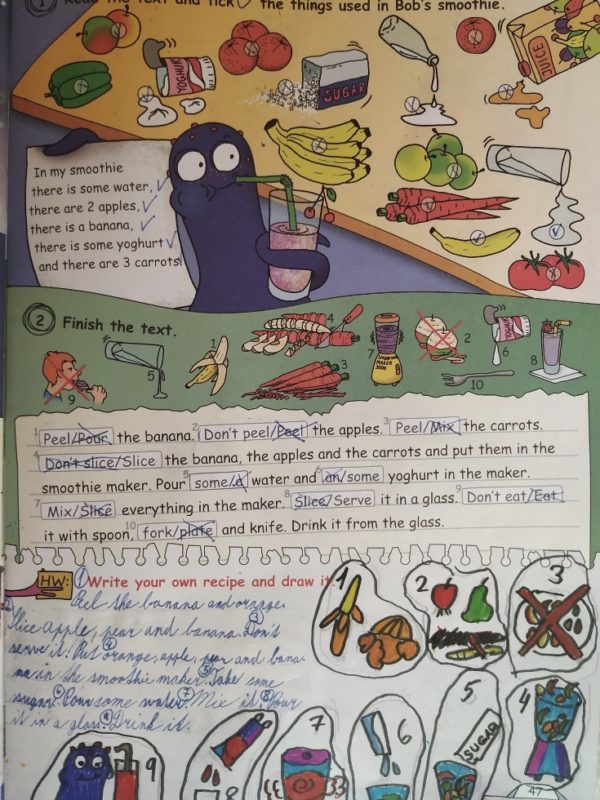 1 Read the text and tick ✓ the things used in Bob's smoothie.
YOGHUR
SUGAR
JUICE
In my smoothie
there is some water, ✓
there are 2 apples, ✓
there is a banana, ✓
there is some yoghurt ✓
and there are 3 carrots
2 Finish the text.
4
1
3
7
2
6
8
5
9
10
1 Peel/Pour the banana. 2 Don't peel/Peel the apples. 3 Peel/Mix the carrots.
4 Don't slice/Slice the banana, the apples and the carrots and put them in the
smoothie maker. Pour 5 some/a water and 6 an/some yoghurt in the maker.
7 Mix/Slice everything in the maker. 8 Slice/Serve it in a glass. 9 Don't eat/Eat
it with spoon, 10 fork/plate and knife. Drink it from the glass.
HW: 1 Write your own recipe and draw it.
Peel the banana and orange.
2 Slice apple, pear and banana. 3 Don't
serve it. 4 Put orange, apple, pear and bana
na in the smoothie maker. 5 Take some
sugar. 6 Pour some water. 7 Mix it. 8 Pour
it in a glass. 9 Drink it.
1
2
3
4
5
SUGAR
6
7
8
9
47